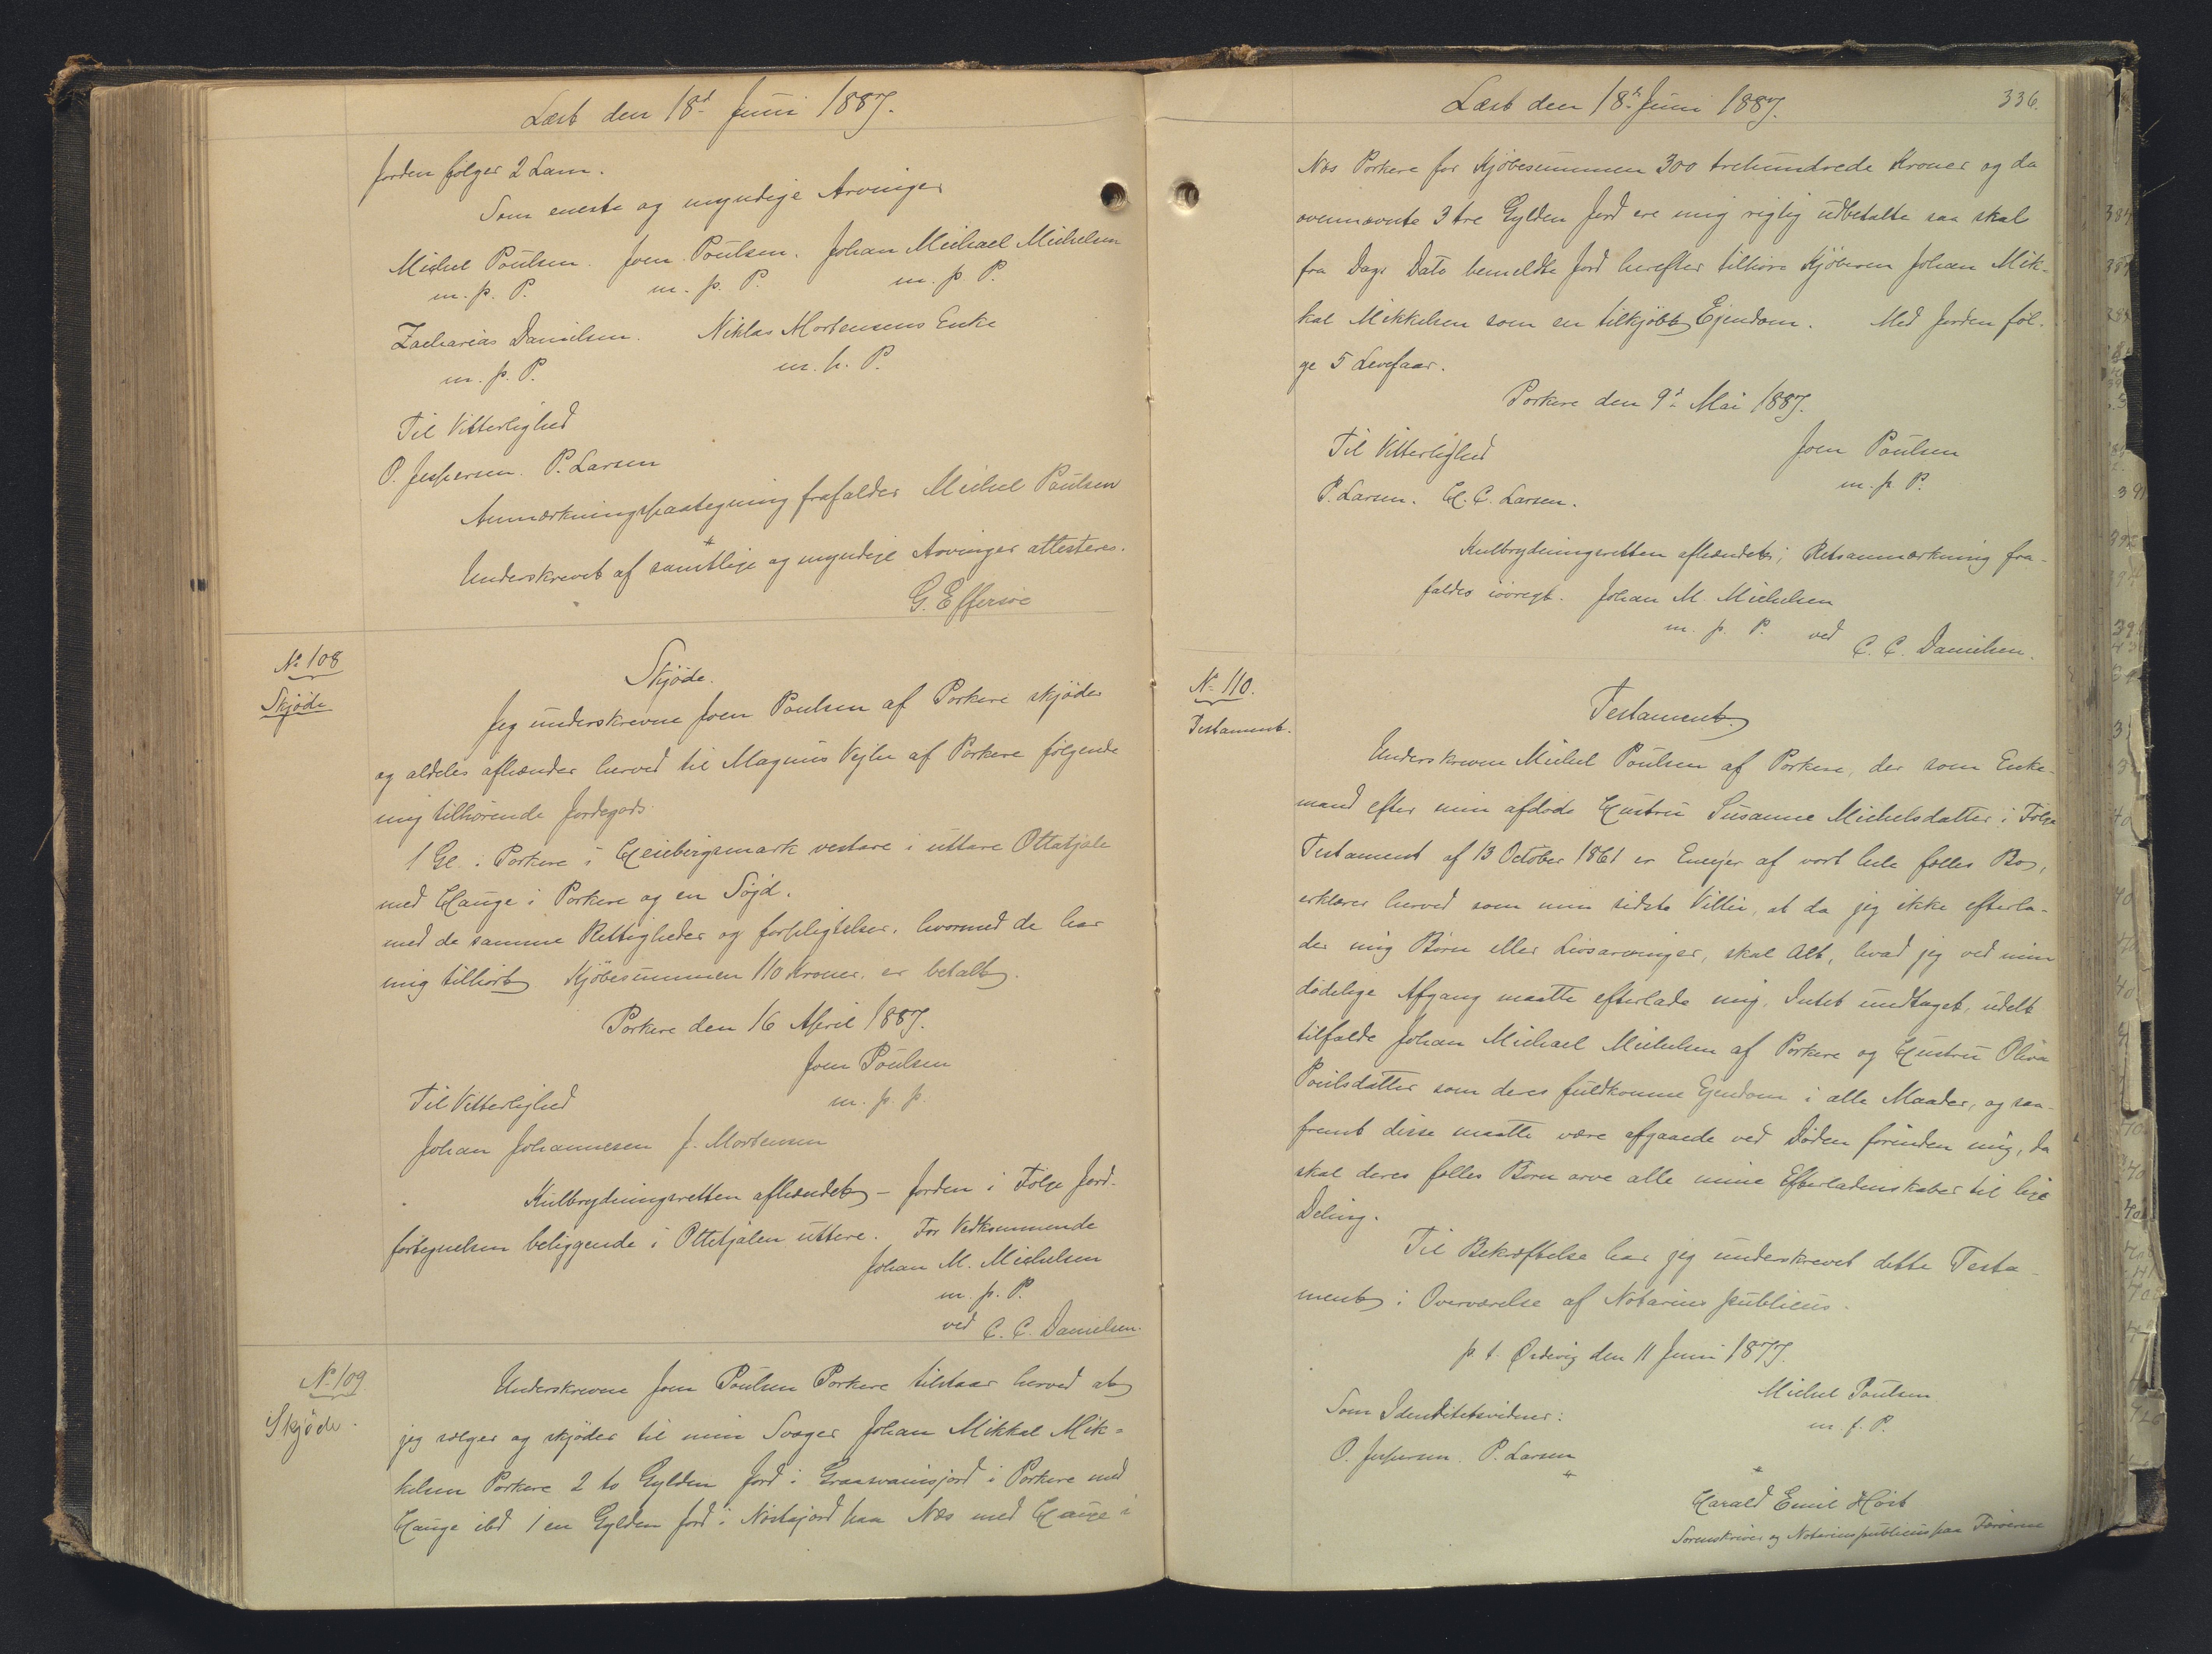 Læst den 18d Juni 1887.
Jorden følger 2 Lam.
Som eneste og myndige Arvinger
Michel Poulsen. Joen Poulsen. Johan Michael Michelsen
m. p. P. m. p. P. m. p. P.
Zacharias Danielsen. Niklas Mortensens Enke
m. p. P. m. p. P.
Til Vitterlighed
O. Jespersen. P. Larsen
Anmærkningspaategning frafalder Michel Poulsen
Underskrevet af samtlige og myndige Arvinger attesteres.
G. Effersøe
No 108
Skjøde
Skjøde.
Jeg underskrevne Joen Poulsen af Porkere skjøder
og aldeles afhænder herved til Magnus Vejhe af Porkere følgende
mig tilhørende Jordegods
1 Gl. Porkere i Heiebergsmark vestare i uttare Ottatjale
med Hauge i Porkere og en Sojd.
med de samme Rettigheder og forpligtelser, hvormed de har
mig tilhørt. Kjøbesummen 110 Kroner, er betalt.
Porkere den 16 April 1887.
Joen Poulsen
Til Vitterlighed m. p. p.
Johan Johannesen J. Mortensen
Kulbrydningsretten afhændet - Jorden i Følge Jord-
fortegnelsen beliggende i Ottetjalen uttere. For Vedkommende
Johan M. Michelsen
m. p. P.
ved C. C. Danielsen.
No 109
Skjøde.
Underskrevne Joen Poulsen Porkere tilstaar herved at
jeg sælger og skjøder til min Svoger Johan Mikkal Mik=
kelsen Porkere 2 to Gylden Jord i Graasvainsjord i Porkere med
Hauge ibd 1 en Gylden Jord i Nestajord paa Næs med Hauge i
Læst den 18de Juni 1887. 336.
Næs Porkere for Kjøbesummen 300 trehundrede Kroner og da
ovennævnte 3 tre Gylden Jord ere mig rigtig udbetalte saa skal
fra Dags Dato bemeldte Jord herefter tilhøre Kjøberen Johan Mik-
kal Mikkelsen som en tilkjøbt Ejendom. Med Jorden føl-
ge 5 Levefaar.
Porkere den 9d Mai 1887.
Til Vitterlighed Joen Poulsen
P. Larsen. H. C. Larsen. m. p. P.
Kulbrydningsretten afhændet; Retsanmærkning fra-
faldes iøvrigt. Johan M. Michelsen
m. p. P. ved C. C. Danielsen.
No 110.
Testament.
Testament
Underskreven Michel Poulsen af Porkere, der som Enke-
mand efter min afdøde Hustru Susanne Michelsdatter i Følge
Testament af 13 October 1861 er Eneejer af vort hele fælles Bo,
erklærer herved som min sidste Villie, at da jeg ikke efterla-
der mig Børn eller Livsarvinger, skal Alt, hvad jeg ved min
dødelige Afgang maatte efterlade mig, Intet undtaget, udelt
tilfalde Johan Michael Michelsen af Porkere og Hustru Oliva
Poulsdatter som deres fuldkomne Ejendom i alle Maader, og saa-
fremt disse maatte være afgaaede ved Døden forinden mig, da
skal deres fælles Børn arve alle mine Efterladenskaber til lige
Deling.
Til Bekræftelse har jeg underskrevet dette Testa-
ment i Overværelse af Notarius publicus.
p. t. Ørdevig den 11 Juni 1877.
Michel Poulsen
Som Identitetsvidner: m. p. P.
O. Jespersen. P. Larsen
Harald Emil Høst
Sorenskriver og Notarius publicus paa Færøerne